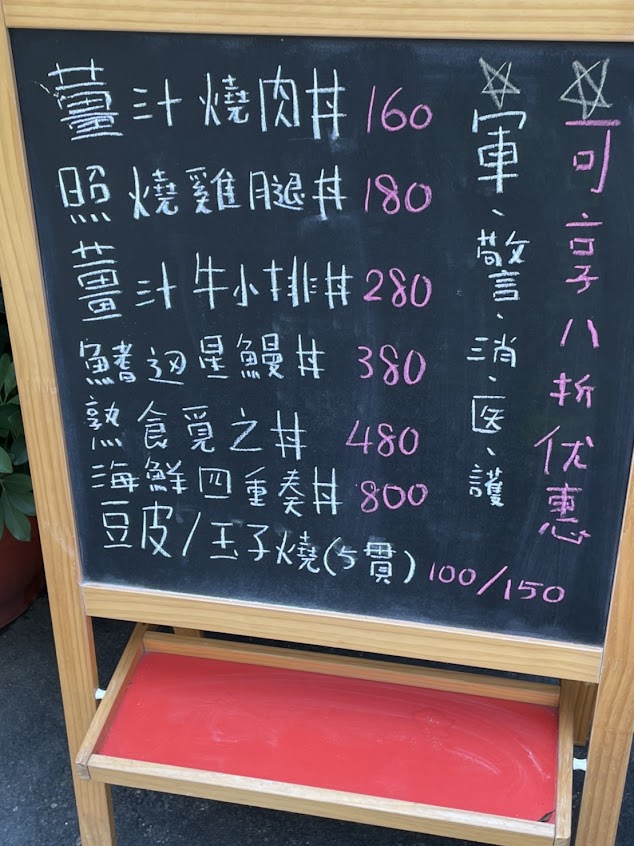 薑汁燒肉丼 160
照燒雞腿丼 180
薑汁牛小排丼 280
鰭邊星鰻丼 380
熟食覓之丼 480
海鮮四重奏丼 800
豆皮/玉子燒(5貫) 100/150
☆軍、警、消、医、護
☆可享八折优惠